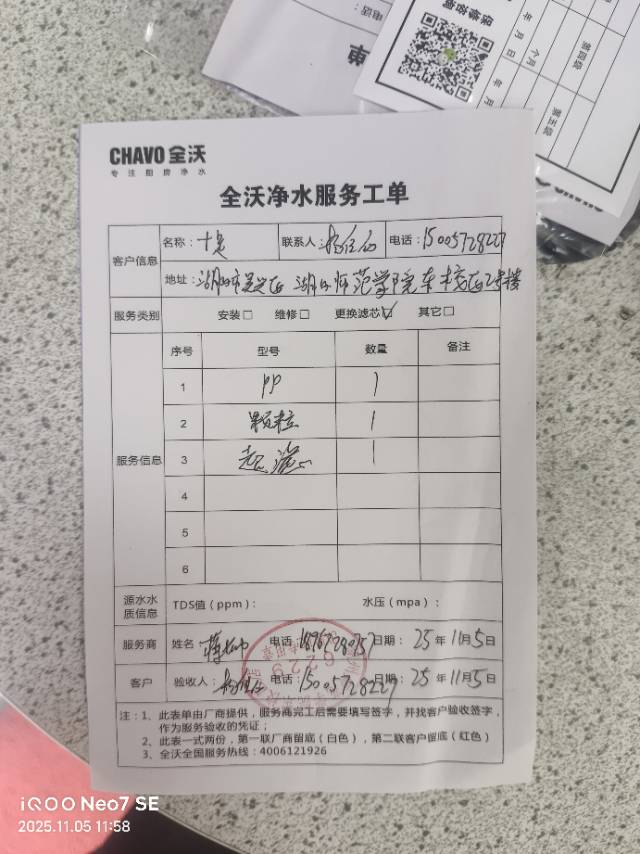 电话：
单
保修咨询
年 月 日
个月
第四级
年 月
第五级
CHAVO
CHAVO 全沃
专注厨房净水
全沃净水服务工单
客户信息 名称： 联系人： 电话：15005728227
地址：湖州市吴兴区 湖州师范学院东校区2号楼
服务类别 安装□ 维修□ 更换滤芯☑ 其它□
服务信息 序号 型号 数量 备注
1 PP 1
2 颗粒 1
3 超滤 1
4
5
6
源水水质信息 TDS值（ppm）： 水压（mpa）：
服务商 姓名 电话： 日期： 25 年 11 月 5 日
客户 验收人： 电话：15005728227 日期： 25 年 11 月 5 日
注：1、此表单由厂商提供，服务商完工后需要填写签字，并找客户验收签字，
作为服务验收的凭证；
2、此表一式两份，第一联厂商留底（白色），第二联客户留底（红色）
3、全沃全国服务热线：4006121926
iQOO Neo7 SE
2025.11.05 11:58